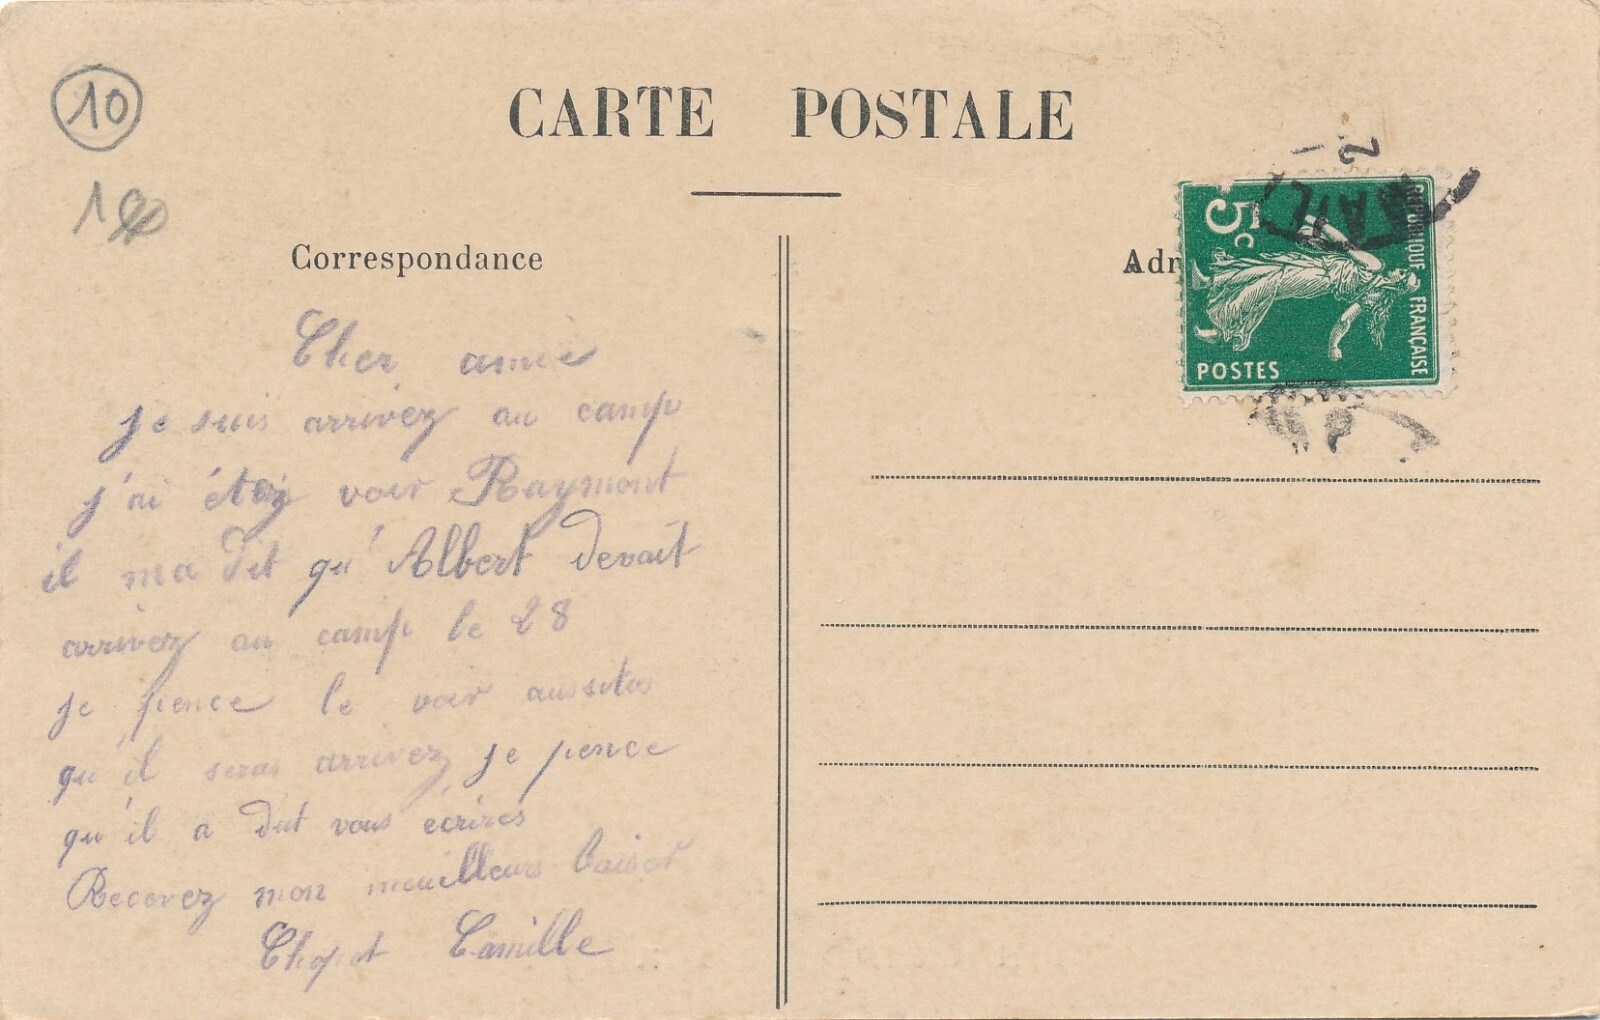 10
CARTE POSTALE
Correspondance
Adr
5c
POSTES
REPUBLIQUE FRANÇAISE
Cher amie
je suis arrivez au camp
j'ai étez voir Raymont
il ma dit qu'Albert devait
arrivez au camp le 28
je pence le voir aussitos
qu'il seras arrivez je pence
qu'il a dut vous écrires
Recevez mon meuilleurs baiser
Camille